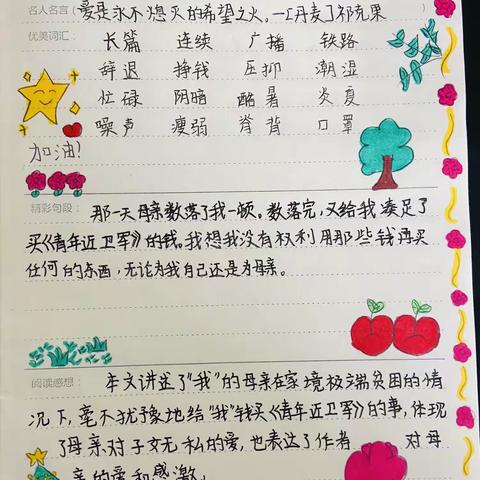 名人名言：爱是永不熄灭的希望之火。—[丹麦]祁克果
优美词汇：长篇 连续 广播 铁路
辞退 挣钱 压抑 潮湿
忙碌 阴暗 酷暑 炎夏
噪声 瘦弱 脊背 口罩
加油!
精彩句段：那一天母亲数落了我一顿。数落完,又给我凑足了
买《青年近卫军》的钱。我想我没有权利用那些钱再买
任何的东西,无论为我自己还是为母亲。
阅读感想：本文讲述了“我”的母亲在家境极端贫困的情
况下,毫不犹豫地给“我”钱买《青年近卫军》的事,体现
了母亲对子女无私的爱,也表达了作者 对母
亲的爱和感激。